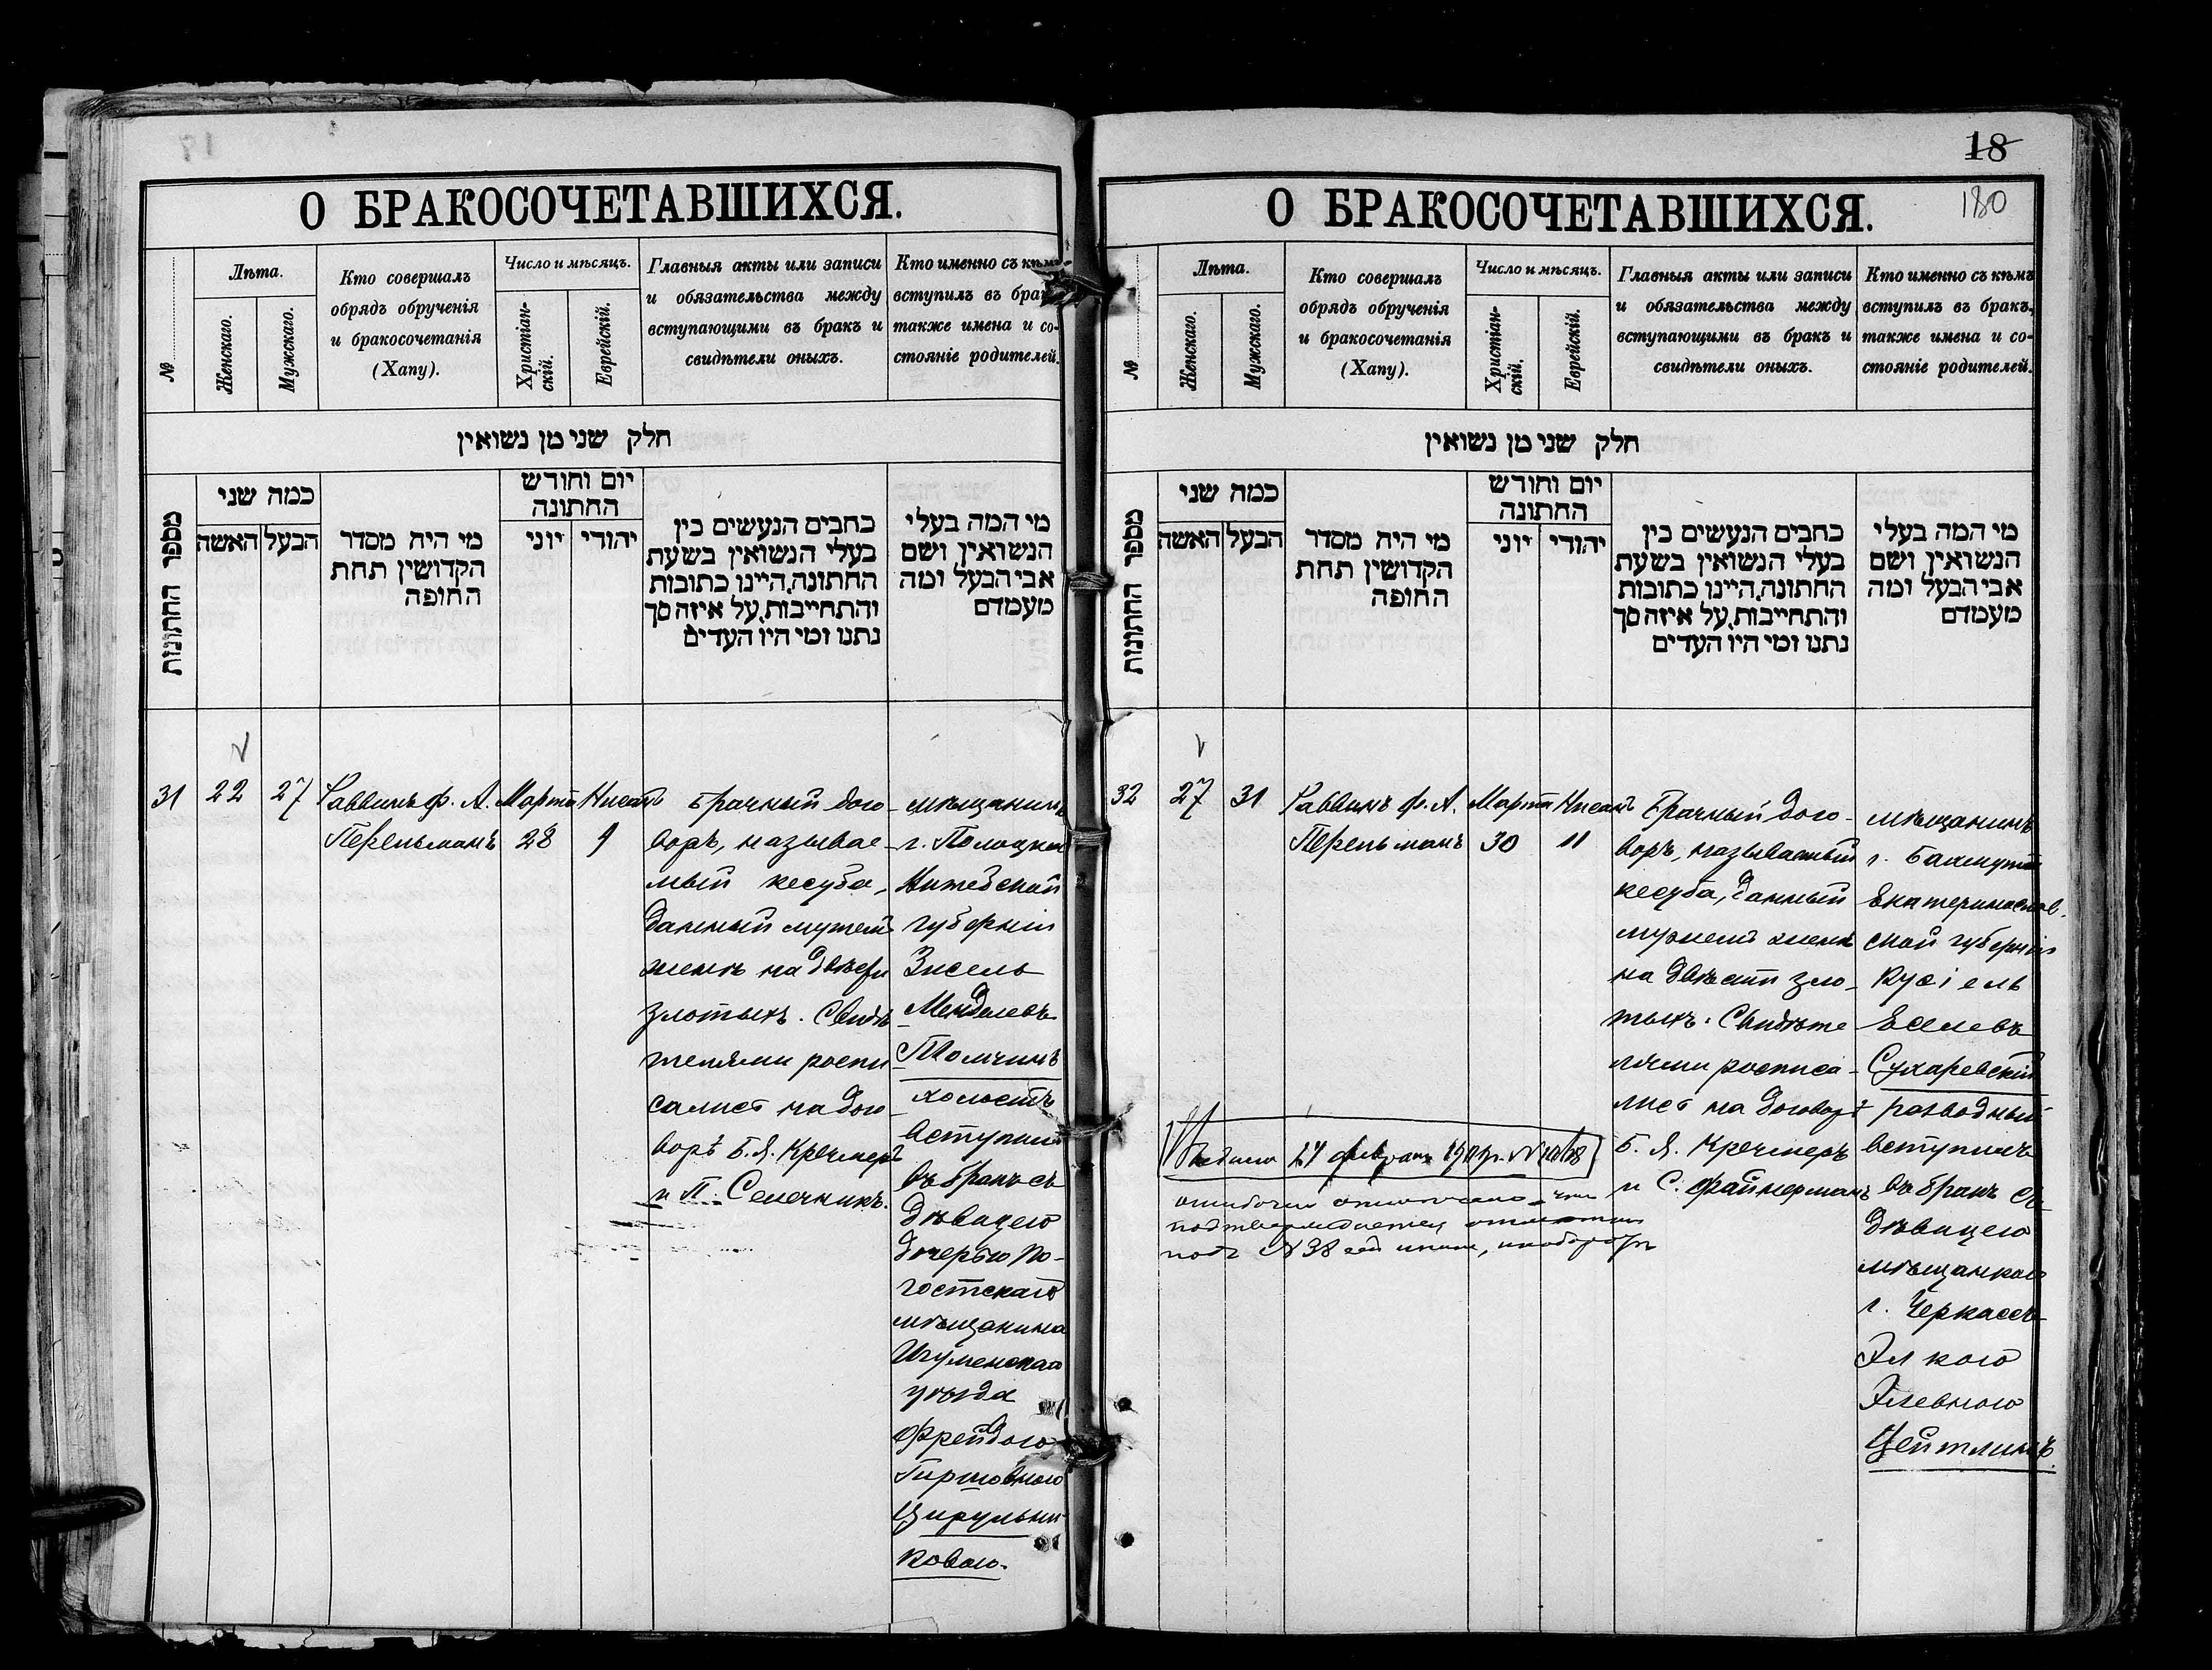 О БРАКОСОЧЕТАВШИХСЯ.
№
Лѣта.
Женскаго.
Мужскаго.
Кто совершалъ
обрядъ обрученія
и бракосочетанія
(Хапу).
Число и мѣсяцъ.
Христіан-
скій.
Еврейскій.
Главныя акты или записи
и обязательства между
вступающими въ бракъ и
свидѣтели оныхъ.
Кто именно съ кѣмъ
вступилъ въ бракъ,
также имена и со-
стояніе родителей.
חלק שני מן נשואין
מספר החתונות
כמה שני
האשה
הבעל
מי היה מסדר
הקדושין תחת
החופה
יום וחודש
החתונה
יוני
יהודי
כתבים הנעשים בין
בעלי הנשואין בשעת
החתונה, היינו כתובות
והתחייבות, על איזה סך
נתנו ומי היו העדים
מי המה בעלי
הנשואין ושם
אבי הבעל ומה
מעמדם
31
22
27
Раввинъ ф. А.
Перельманъ
Марта
28
Нисанъ
9
Брачный дого-
воръ, называе-
мый кесуба,
данный мужемъ
женѣ на двѣсти
злотыхъ. Свидѣ
телями роспи
сались на дого-
ворѣ Б. Я. Кречмеръ
и П. Селечникъ.
мѣщанинъ
г. Полоцка
Витебской
губерніи
Зисель
Менделевъ
Толчинъ
холостъ
вступилъ
въ бракъ съ
дѣвицею
дочерью По-
гостскаго
мѣщанина
Игуменскаго
уѣзда
Фрейдою
Гиршовною
Цирульни-
ковою.
18
180
О БРАКОСОЧЕТАВШИХСЯ.
№
Лѣта.
Женскаго.
Мужскаго.
Кто совершалъ
обрядъ обрученія
и бракосочетанія
(Хапу).
Число и мѣсяцъ.
Христіан-
скій.
Еврейскій.
Главныя акты или записи
и обязательства между
вступающими въ бракъ и
свидѣтели оныхъ.
Кто именно съ кѣмъ
вступилъ въ бракъ,
также имена и со-
стояніе родителей.
חלק שני מן נשואין
מספר החתונות
כמה שני
האשה
הבעל
מי היה מסדר
הקדושין תחת
החופה
יום וחודש
החתונה
יוני
יהודי
כתבים הנעשים בין
בעלי הנשואין בשעת
החתונה, היינו כתובות
והתחייבות, על איזה סך
נתנו ומי היו העדים
מי המה בעלי
הנשואין ושם
אבי הבעל ומה
מעמדם
32
27
31
Раввинъ ф. А.
Перельманъ
Марта
30
Нисанъ
11
Брачный дого-
воръ, называемый
кесуба, данный
мужемъ женѣ
на двѣсти зло-
тыхъ. Свидѣте
лями росписа-
лись на договорѣ
Б. Я. Кречмеръ
и С. Файнерманъ
мѣщанинъ
г. Бахмута
Екатеринослав.
ской губерніи
Кусіель
Еселевъ
Сухаревскій
разводный
вступилъ
въ бракъ съ
дѣвицею
мѣщанкою
г. Черкассъ
Элкою
Элевною
Цейтлинъ.
24 февраля
ошибочно отмѣчено, что
подтверждается
подъ № 38 сей книги,